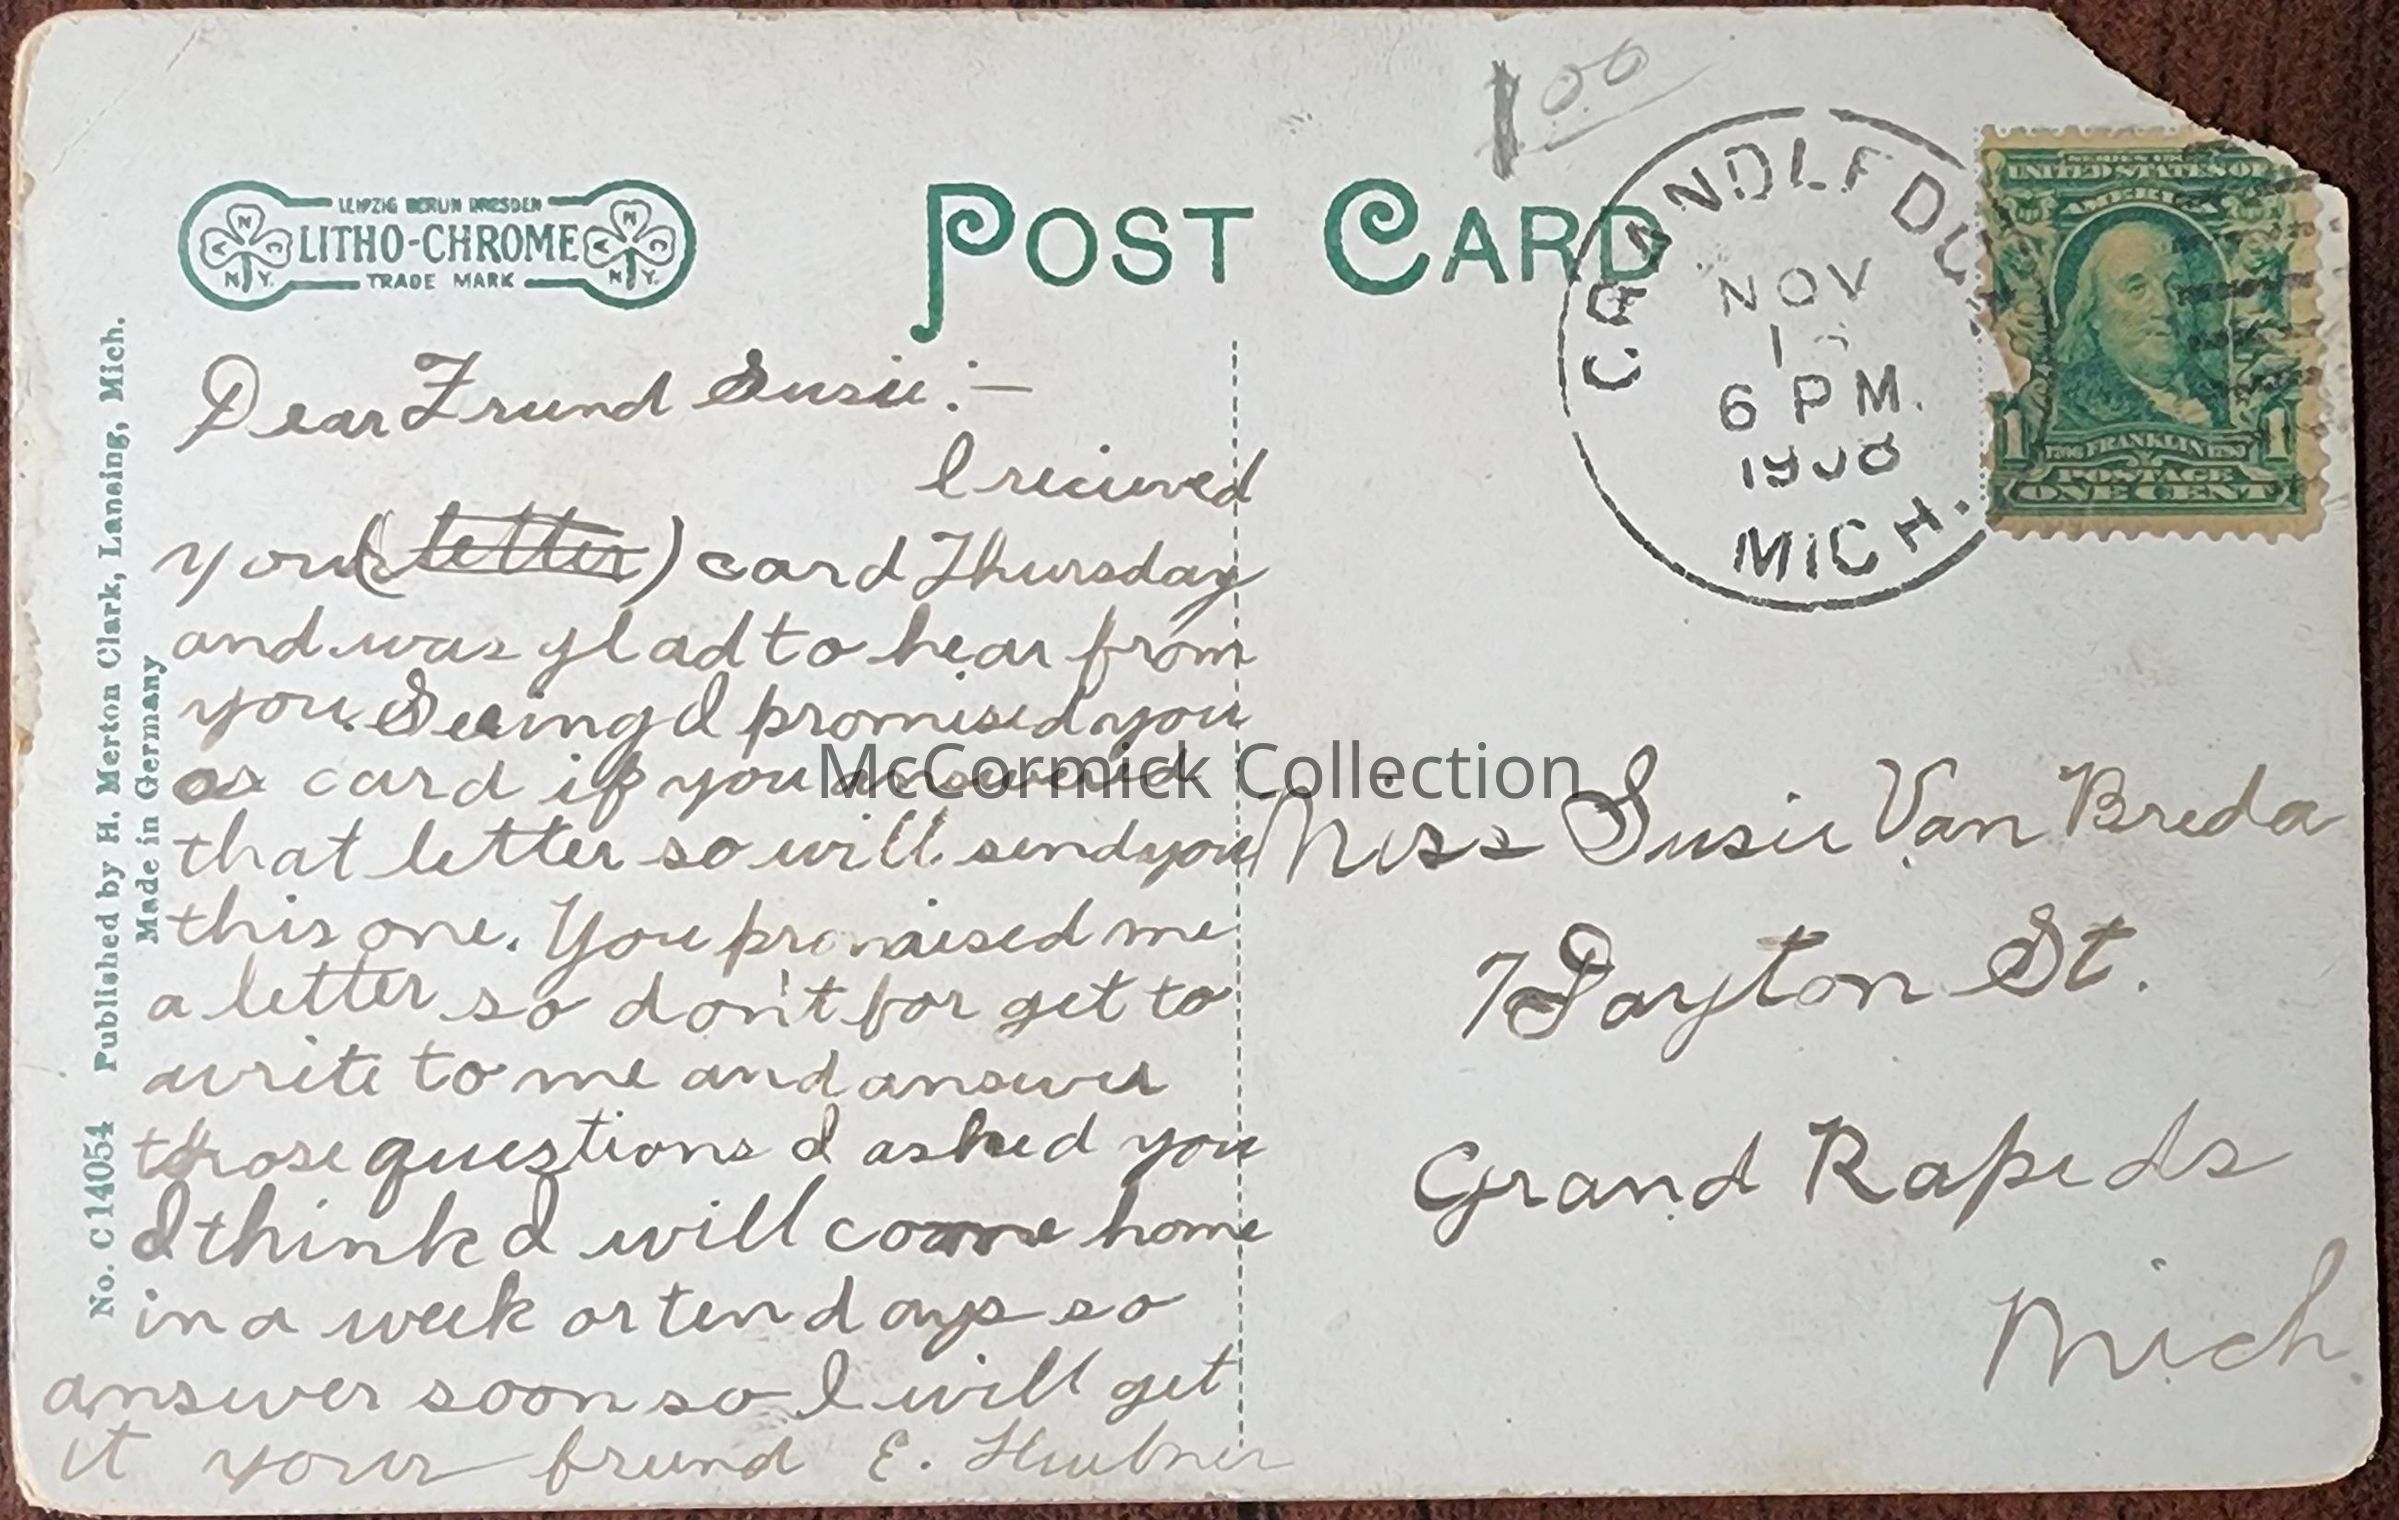 1 00
LEIPZIG BERLIN DRESDEN
LITHO-CHROME
TRADE MARK
POST CARD
CRANDLE
NOV
6 PM.
1908
MICH.
UNITED STATES OF
AMERICA
1 1
FRANKLIN
POSTAGE
ONE CENT
No. C 14054 Published by H. Merton Clark, Lansing, Mich.
Made in Germany
Dear Friend Susie:—
I recieved
your (letter) card Thursday
and was glad to hear from
you. Seeing I promised you
a card if you answered
that letter so will send you
this one. You promised me
a letter so don't for get to
write to me and answer
those questions I asked you
I think I will come home
in a week or ten days so
answer soon so I will get
it your friend E. Huebner
McCormick Collection
Miss Susie Van Breda
7 Dayton St.
Grand Rapids
Mich.